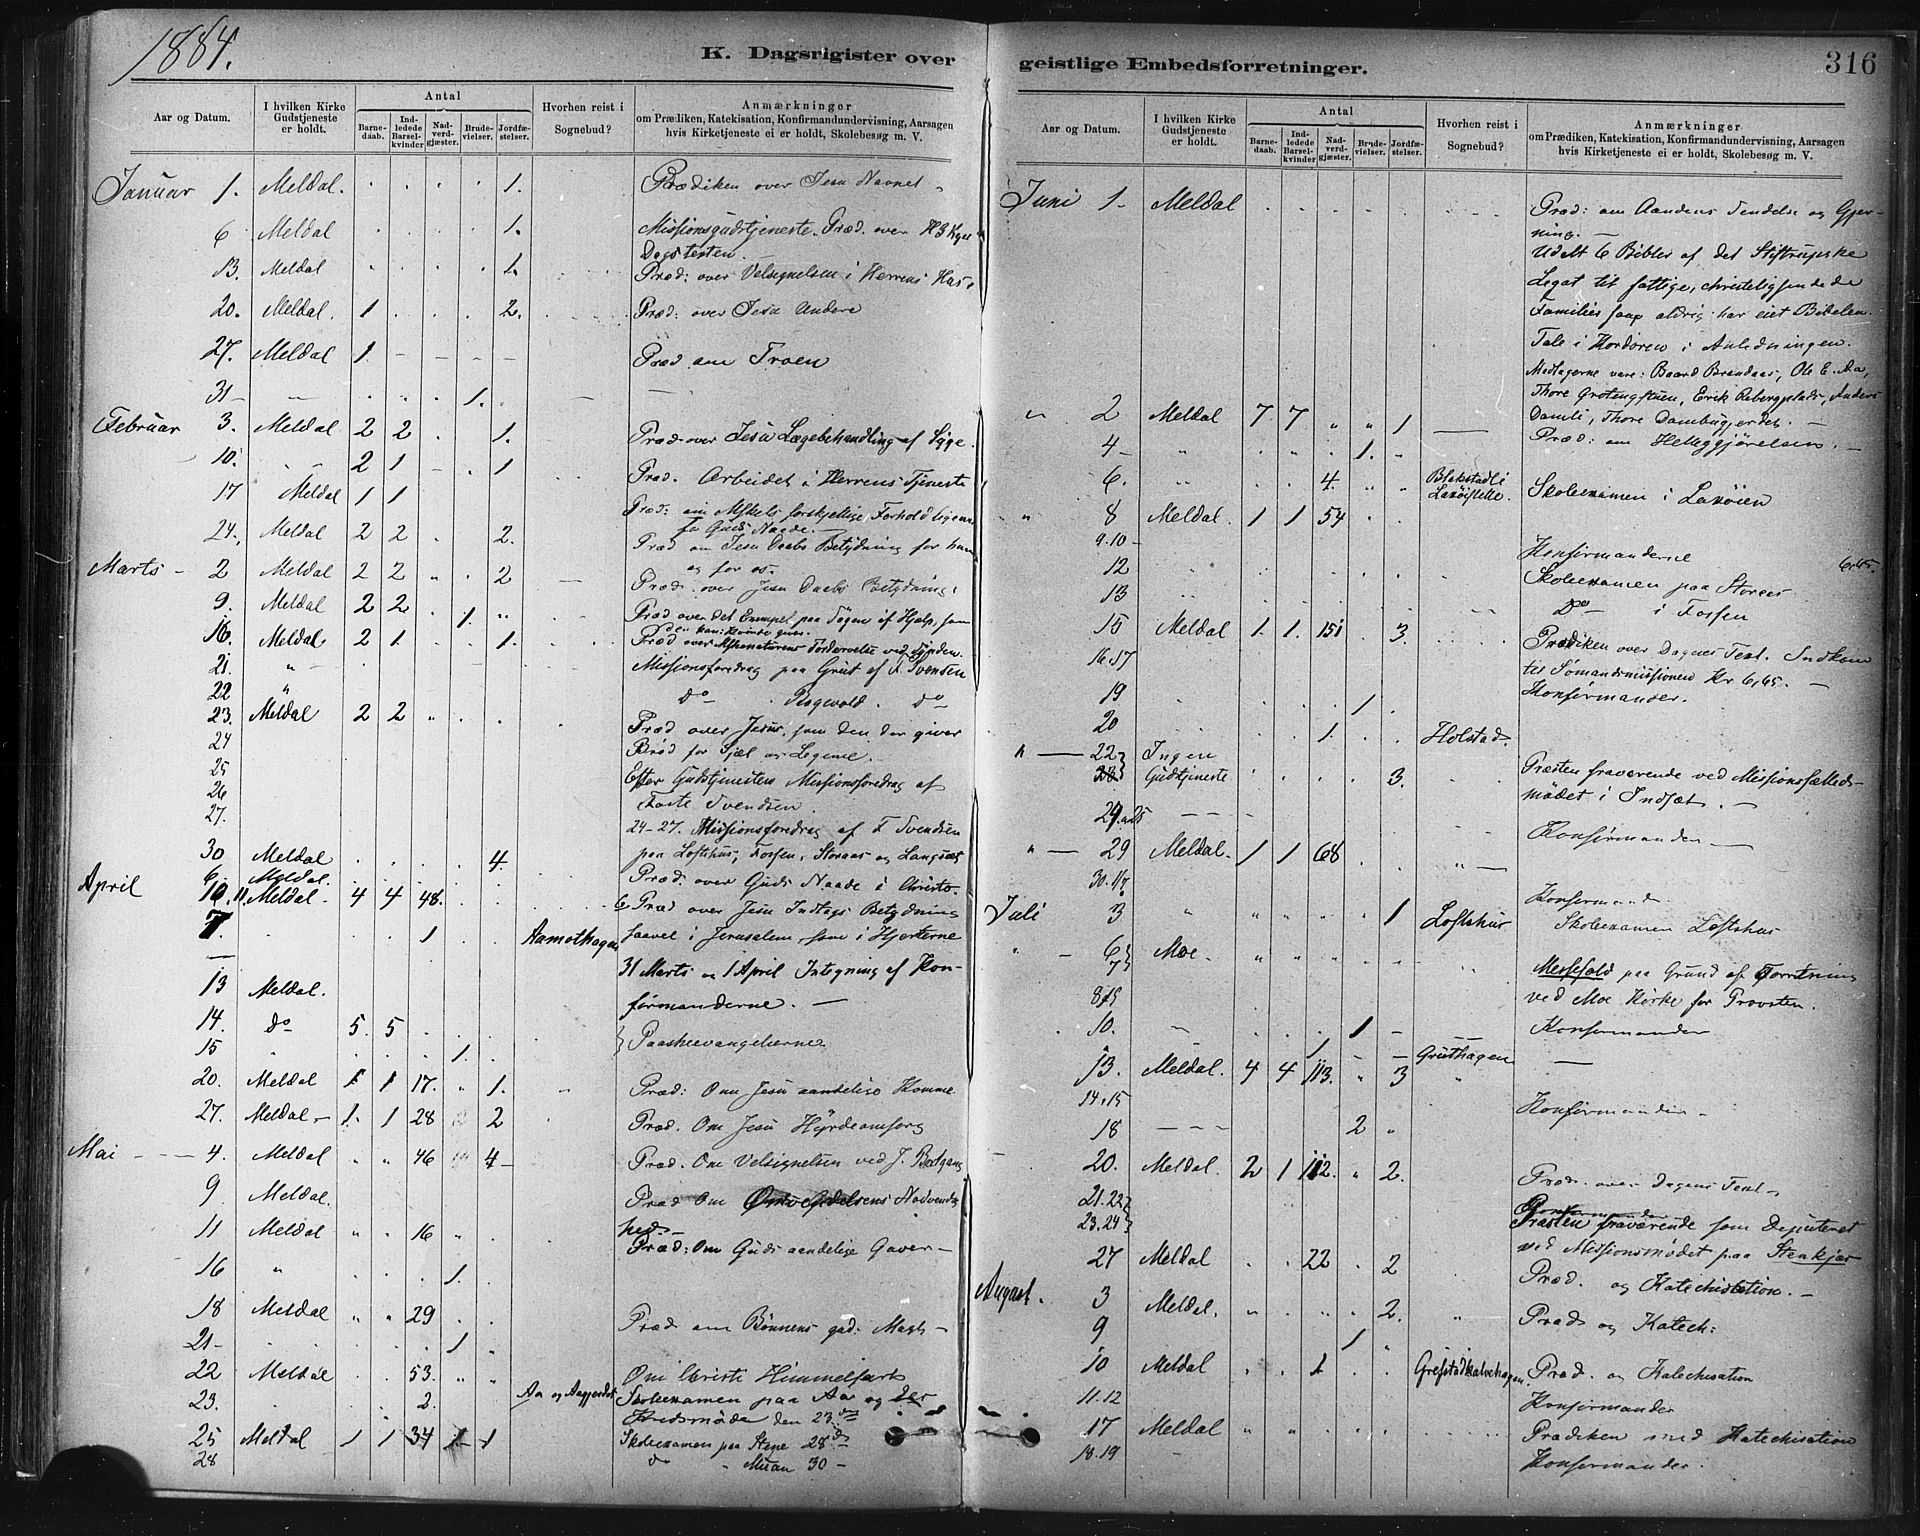 1884.
K. Dagsrigister over
geistlige Embedsforretninger.
316
Aar og Datum.
I hvilken Kirke Gudstjeneste er holdt.
Antal
Barnedaab.
Indledede Barselkvinder
Nadverdgjæster.
Brudevielser.
Jordfæstelser.
Hvorhen reist i Sognebud?
Anmærkninger
om Prædiken, Katekisation, Konfirmandundervisning, Aarsagen
hvis Kirketjeneste ei er holdt, Skolebesøg m. V.
Januar 1. Meldal. . . . . 1. Prædiken over Jesu Navnet -
6 Meldal . . . . 1. Missionsgudstjeneste. Præd. over
Dagsteksten. -
13. Meldal . . . . 1. Præd: over Velsignelsen i Herrens Hus
20. Meldal. 1 . . . 2. Præd: over Jesu Undere
27. Meldal 1. - - - - Præd om Troen
31 - . . . 1. . -
Februar 3. Meldal 2 2 . . 1. Præd. over Jesu Lægebehandling af Syge.
10. 2 1 - . 1
17 Meldal 1 1 Præd. Arbeidet i Herrens Tjeneste
24. Meldal 2 2 . . 2. Præd: om Mskets forskjellige Forhold ligeoverfor
Guds Naade. -
Marts - 2 Meldal 2 2 " . 2 Præd om Jesu Daabs Betydning for ham
og for os.
9. Meldal 2 2 . 1. " Præd. over Jesu Daabs Betydning.
16. Meldal. 2 1 . . 1. Præd over det Exempel paa Søgen af Hjælp, som
den kan: Kvinde giver.
Præd over Mskenaturens Fordærvelse ved Synden.
21. "
Missionsforedrag paa Grut af F Svendsen
22 "
do Rogvold. do
23. Meldal 2 2 " . . Præd over Jesus, som den der giver
Brød for Sjæl og Legeme.
24
25 Efter Gudstjenesten Missionsforedrag af
26 Svendsen.
27. 24-27. Missionsforedrag af F Svendsen
paa Loftshus, Fossen, Storaas og Langsæt
30 Meldal . . . . 4. Præd: over Guds Naade i Christo.
April 6. Meldal.
10.11 Meldal. 4 4 48. . 6 Præd over Jesu Indtogs Betydning
7. . . 1 . Aamothagen saavel i Jerusalem, som i Hjerterne
31 Marts og 1 April Integning af Kon-
firmanderne. -
13 Meldal.
14. do 5. 5 . Paaskeevangelierne
15 . . . 1.
20. Meldal 1 1 17. " 1. Præd: Om Jesu aandelige Komme
27. Meldal - 1. 1 28 2 Præd. Om Jesu Hyrdeomsorg
Mai - - - 4. Meldal " " 46 4 - Præd. Om Velsignelsen ved J. Bortgang
9 Meldal. Præd Om Nødvendig
hed -
11 Meldal " " 16 " . Præd: Om Guds aandelige Gaver -
16 " 1.
18 Meldal " " 29 . . Præd om Bønnens gad: Magt -
21 - . . . 1 "
22 Meldal 53. " " Om Christi Himmelfart
23. 2. Aa og Aagjerdet Skolexamen paa Aa og
Kredsmøde den 23.de
25 Meldal 1 1 34 1 1 Skolexamen paa Stene 28de
28 do " Muan 30 -
Aar og Datum.
I hvilken Kirke Gudstjeneste er holdt.
Antal
Barnedaab.
Indledede Barselkvinder
Nadverdgjæster.
Brudevielser.
Jordfæstelser.
Hvorhen reist i Sognebud?
Anmærkninger
om Prædiken, Katekisation, Konfirmandundervisning, Aarsagen
hvis Kirketjeneste ei er holdt, Skolebesøg m. V.
Juni 1 - Meldal . . . . . Præd: om Aandens Sendelse og Gjer-
ning. -
Udelt 6 Bibler af det Stiftrupske
Legat til fattige, christeligsindede
Familier som aldrig har eiet Bibelen.
Tale i Kordøren i Anledningen.
Modtagerne vare: Baard Brandaas, Ole E. Aa,
Thore Grøtengstuen, Erik Rebergplads, Anders
Damli, Thore Dambugjerdet. -
" 2 Meldal 7 7 " " 1 - Præd: om Helliggjørelsen. -
4 - " . . 1. .
6. " 4. " " Blokstadli Laxøistette. Skolexamen i Laxøien
" 8 Meldal. 1 1 54
9.10 - Konfirmanderne 6,45.
12 Skolexamen paa Storaas
13 Do - i Fossen
15 Meldal 1. 1. 151 . 3 Prædiken over Dagens Text. Indkom
til Sømandsmissionen Kr 6,45. -
16.17 Konfirmander.
19 . . . 1 .
20 1. . . Holstad.
" - 22 Ingen
23 Gudtjeneste . . . . 3. Præsten fraværende ved Missionsfælleds-
mødet i Indset. -
24. og 25 - - - Konfirmander -
" - 29 Meldal. 1 1 68 .
30. 1/7 Konfirmand.
Juli 3 " " " " " 1 Loftshus Skolexamen Loftshus
" - 6 7 Moe. Messefald paa Grund af Forretning
ved Moe Kirke for Provsten.
8 & 9 Konfirmander
10. - 1 -
1 - - Gruthagen -
13. Meldal. 4 4 113. " 3 "
14.15 Konfirmander -
18 - - - 2 "
20. Meldal. 2 1 112. " 2. Præd. over Dagens Text -
21.22 Konfirmander
23.24 Præsten fraværende som Deputeret
ved Missionsmødet paa Stenkjær
27 Meldal . . 22 . 2 Præd. og Katechisation. -
August. 3 Meldal. " " " 2. Præd og Katech:
9 1
10 Meldal . . 1 . . Grefstadkalvehagen. Præd. og Katechisation
11.12 Konfirmander
17 Meldal " " Prædiken med Katechisation
18.19 - Konfirmander.